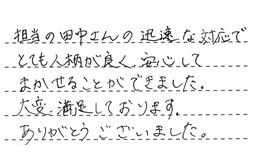 担当の田中さんの迅速な対応で
とても人柄が良く、安心して
まかせることができました。
大変、満足しております。
ありがとうございました。